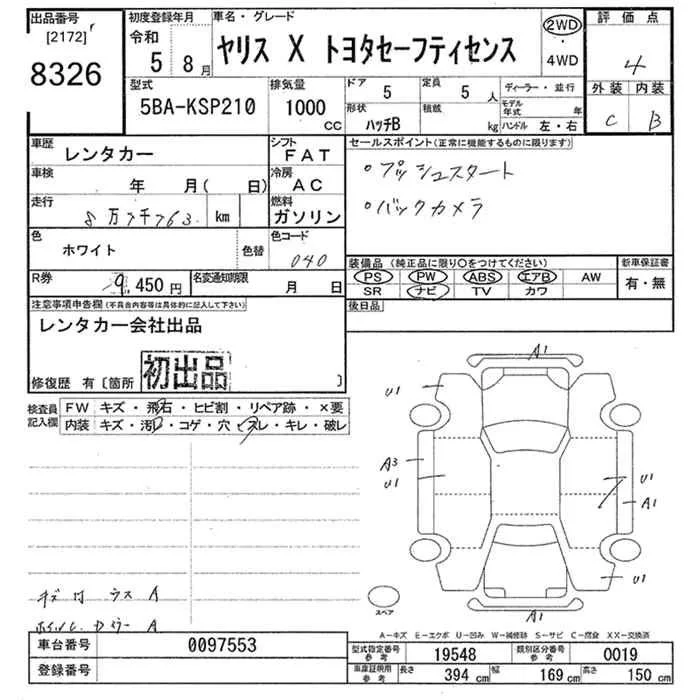 出品番号
[2172]
8326
初度登録年月
令和
5 8月
車名・グレード
ヤリス X トヨタセーフティセンス
2WD
・
4WD
評価点
4
外装 内装
C B
型式
5BA-KSP210
排気量
1000
CC
ドア
5
定員
5 人
形状
ハッチB
積載
kg
ディーラー・並行
モデル年式 年
ハンドル 左・右
車歴
レンタカー
シフト
FAT
車検
年 月( 日)
冷房
AC
走行
8万7千763 km
燃料
ガソリン
色
ホワイト
色替
色コード
040
R券
9,450円
名変通知期限
月 日
セールスポイント(正常に機能するものに限ります)
・プッシュスタート
・バックカメラ
装備品(純正品に限り○をつけてください)
PS PW ABS エアB AW
SR ナビ TV カワ
新車保証書
有・無
後日品
注意事項申告欄(不具合内容等は具体的に記入して下さい)
レンタカー会社出品
初出品
修復歴 有〔箇所 〕
検査員
記入欄
FW キズ・飛石・ヒビ割・リペア跡・×要
内装 キズ・汚レ・コゲ・穴・スレ・キレ・破レ
A1
U1 U1
A3
U1
U1
A1
U1
A1
スペア
A
A
A-キズ E-エクボ U-凹み W-補修跡 S-サビ C-腐食 XX-交換済
車台番号
0097553
登録番号
型式指定番号
参考
19548
類別区分番号
参考
0019
車庫証明用
参考
長さ
394 cm
幅
169 cm
高さ
150 cm